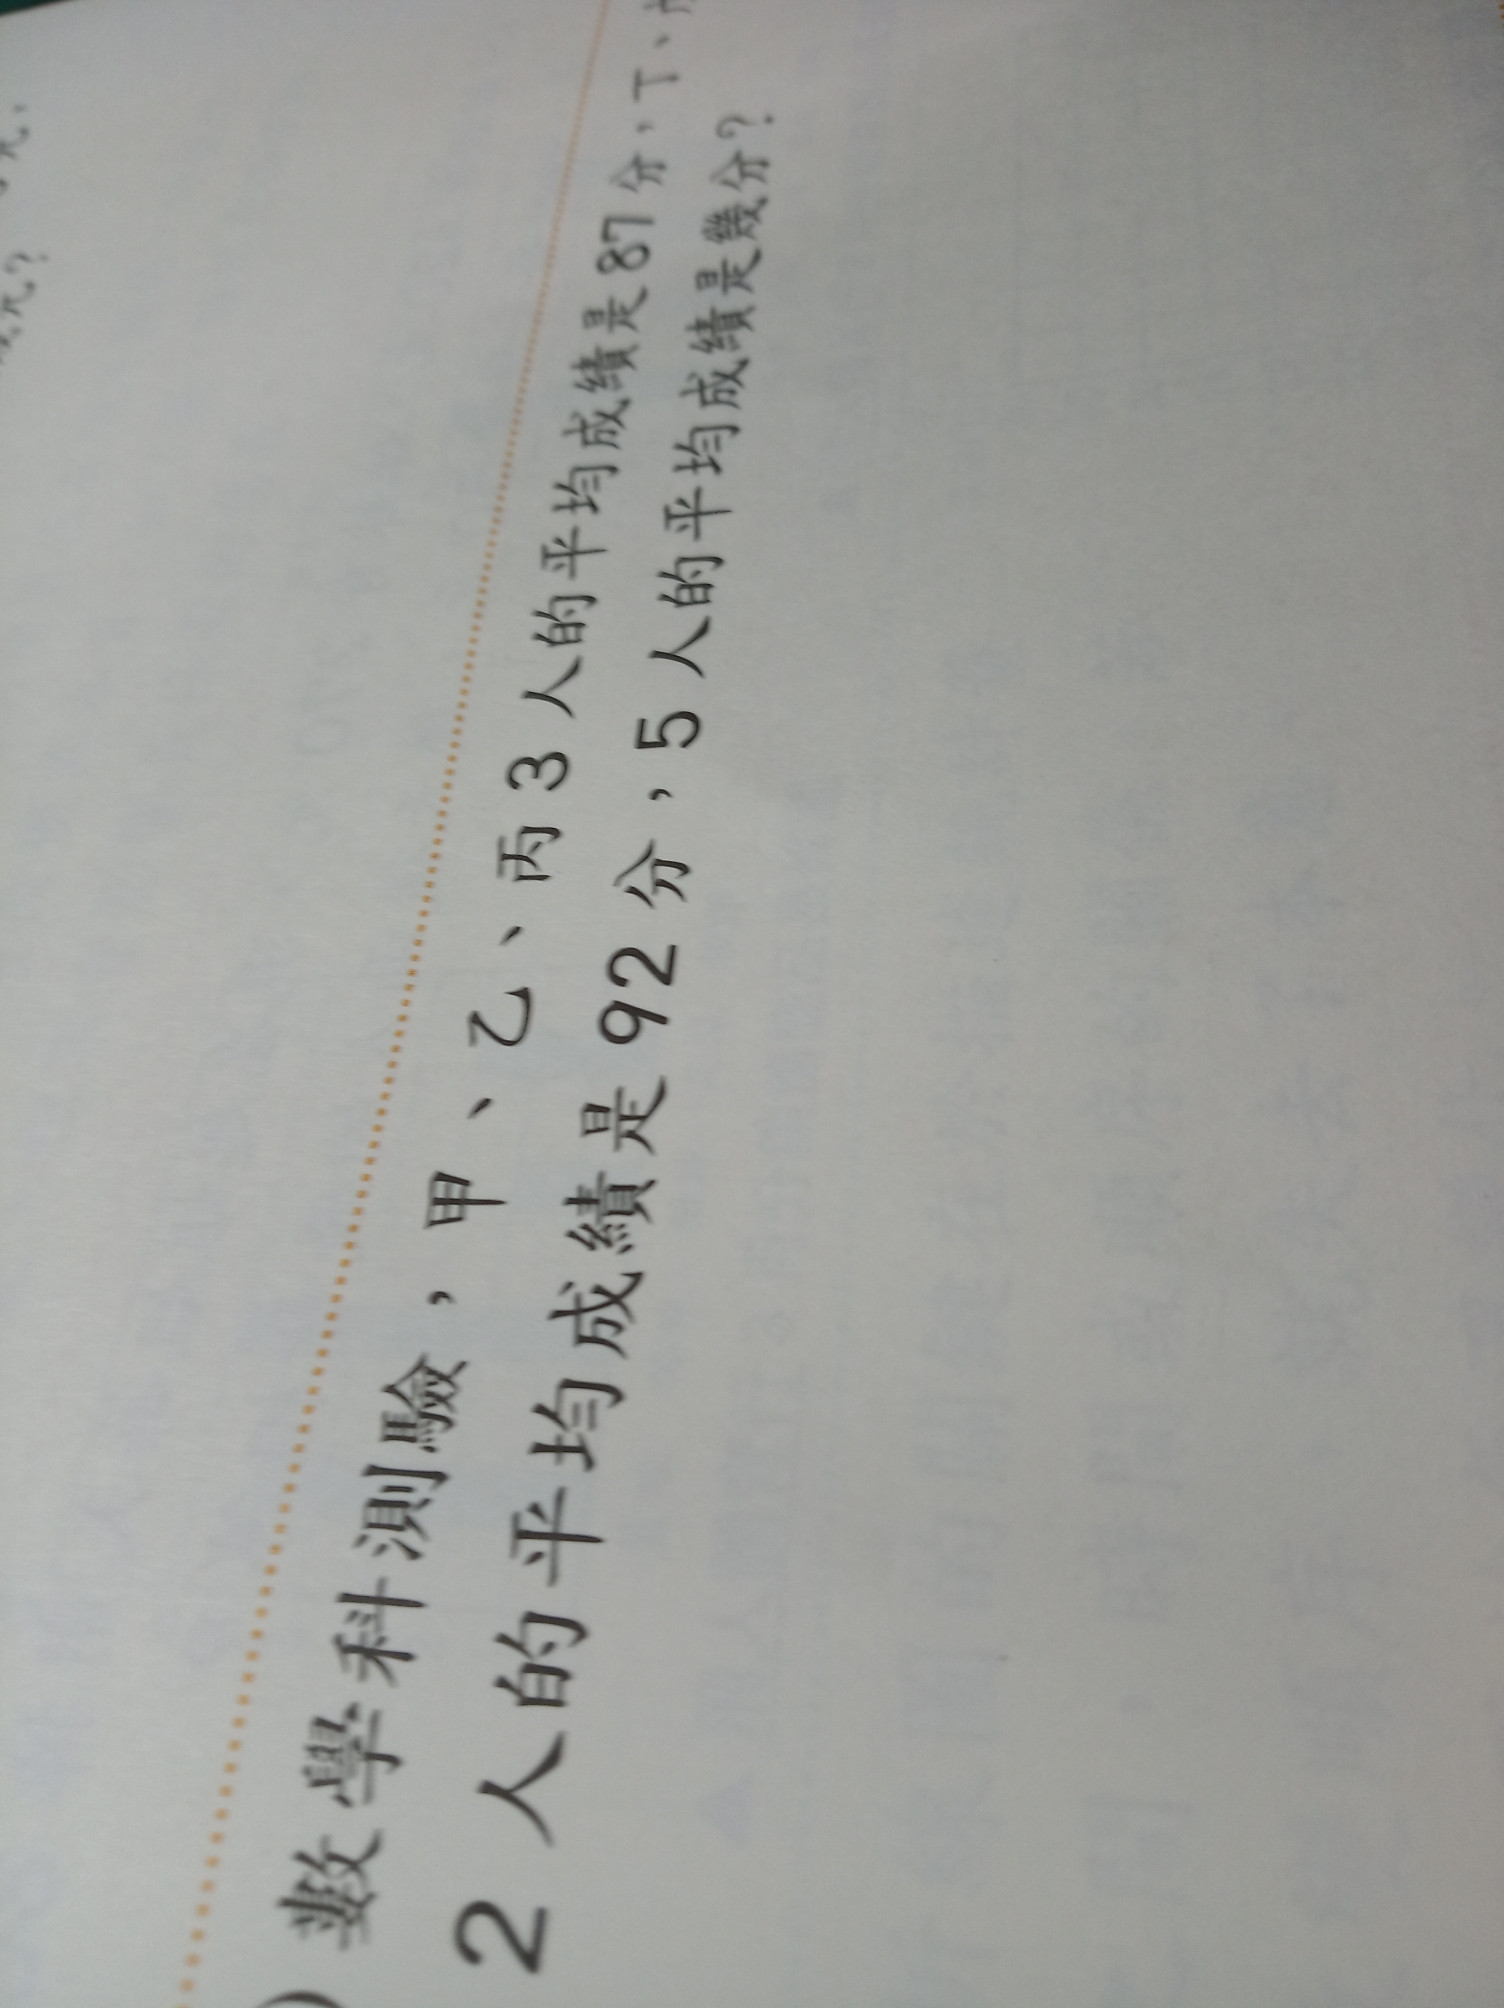 元，
元？
數學科測驗，甲、乙、丙3人的平均成績是87分，丁、
2人的平均成績是92分，5人的平均成績是幾分？